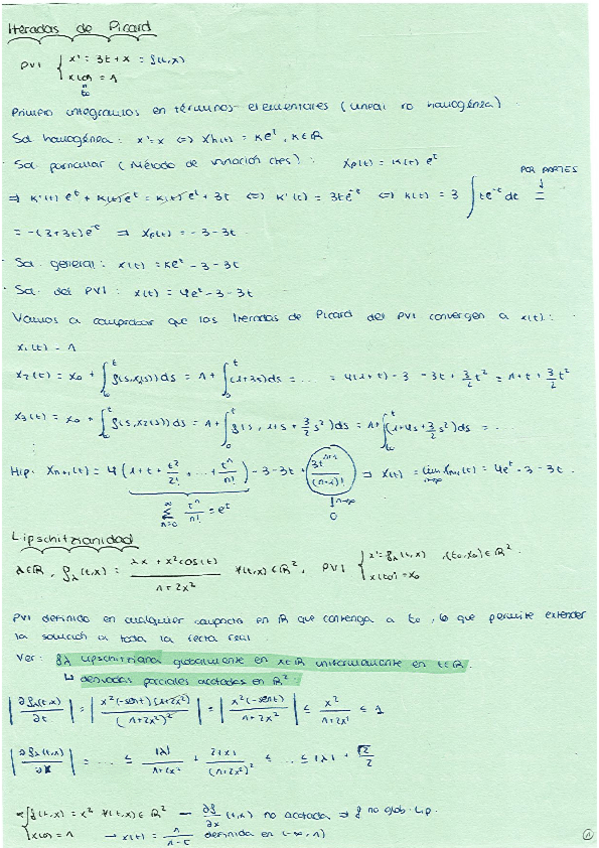 Iteradas de Picard
PVI { x' = 3t + x = f(t,x)
x(0) = 1
t₀
Primero integramos en términos elementales (lineal no homogénea)
Sol homogénea: x' = x ⇔ xh(t) = Ke^t, K∈ℝ
Sol. particular (Método de variación ctes): xp(t) = K(t) e^t
POR PARTES
⇒ K'(t) e^t + K(t)e^t = K(t)e^t + 3t ⇔ K'(t) = 3te^-t ⇔ K(t) = 3 ∫ te^-t dt =
= -(3+3t)e^-t ⇒ xp(t) = -3-3t
Sol. general: x(t) = Ke^t - 3 - 3t
Sol. del PVI: x(t) = 4e^t - 3 - 3t
Vamos a comprobar que las Iteradas de Picard del PVI convergen a x(t):
x₁(t) = 1
x₂(t) = x₀ + ∫ f(s,x₁(s))ds = 1 + ∫₀^t (1+3s)ds = ... = 4(1+t) - 3 - 3t + 3/2 t² = 1 + t + 3/2 t²
x₃(t) = x₀ + ∫ f(s,x₂(s))ds = 1 + ∫₀^t f(s, 1+s + 3/2 s²)ds = 1 + ∫(1+4s + 3/2 s²)ds = ...
Hip. xn+1(t) = 4 (1 + t + t²/2! + ... + t^n/n!) - 3 - 3t + 3t^n+1/(n+1)! ⇒ x(t) = lim xn+1(t) = 4e^t - 3 - 3t.
∑ n=0 ∞ t^n/n! = e^t
↓ n→∞
0
Lipschitzianidad
λ∈ℝ, fλ(t,x) = λx + x²cos(t) / 1+2x² ∀(t,x)∈ℝ², PVI { x' = fλ(t,x), (t₀,x₀)∈ℝ²
x(t₀) = x₀
PVI definido en cualquier compacto en ℝ que contenga a t₀, lo que permite extender
la solución a toda la recta real.
Ver: fλ lipschitziana globalmente en x∈ℝ uniformemente en t∈ℝ.
↳ derivadas parciales acotadas en ℝ²:
|∂fλ(t,x)/∂t| = |x²(-sent)(1+2x²)/(1+2x²)²| = |x²(-sent)/1+2x²| ≤ x²/1+2x² ≤ 1
|∂fλ(t,x)/∂x| = ... ≤ |λ|/1+2x² + 2|x|/(1+2x²)² ≤ ... ≤ |λ| + √2/2
* { f(t,x) = x² ∀(t,x)∈ℝ² → ∂f/∂x (t,x) no acotada ⇒ f no glob. Lip.
x(0) = 1 → x(t) = 1/1-t definida en (-∞,1)
①